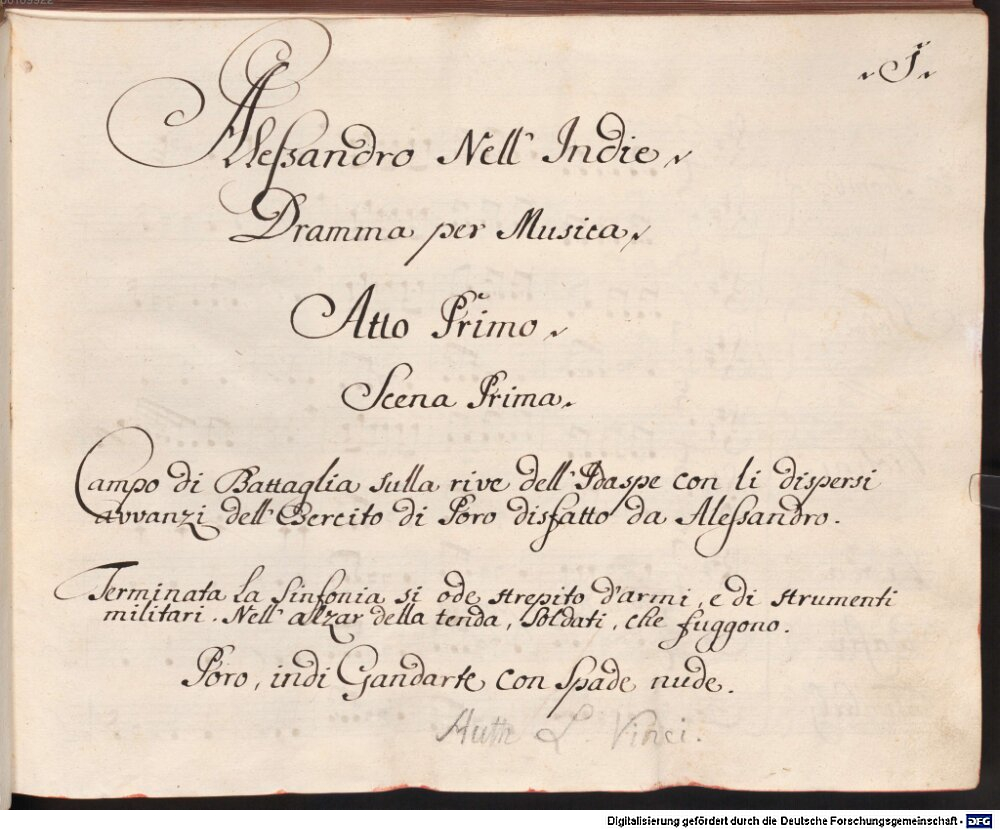 1
Alessandro Nell' Indie
Dramma per Musica
Atto Primo
Scena Prima.
Campo di Battaglia sulla rive dell' Idaspe con li dispersi
avvanzi dell' Esercito di Poro disfatto da Alessandro.
Terminata la Sinfonia si ode strepito d'armi, e di strumenti
militari. Nell' alzar della tenda, Soldati, che fuggono.
Poro, indi Gandarte con Spade nude.
L. Vinci.
Digitalisierung gefördert durch die Deutsche Forschungsgemeinschaft - DFG